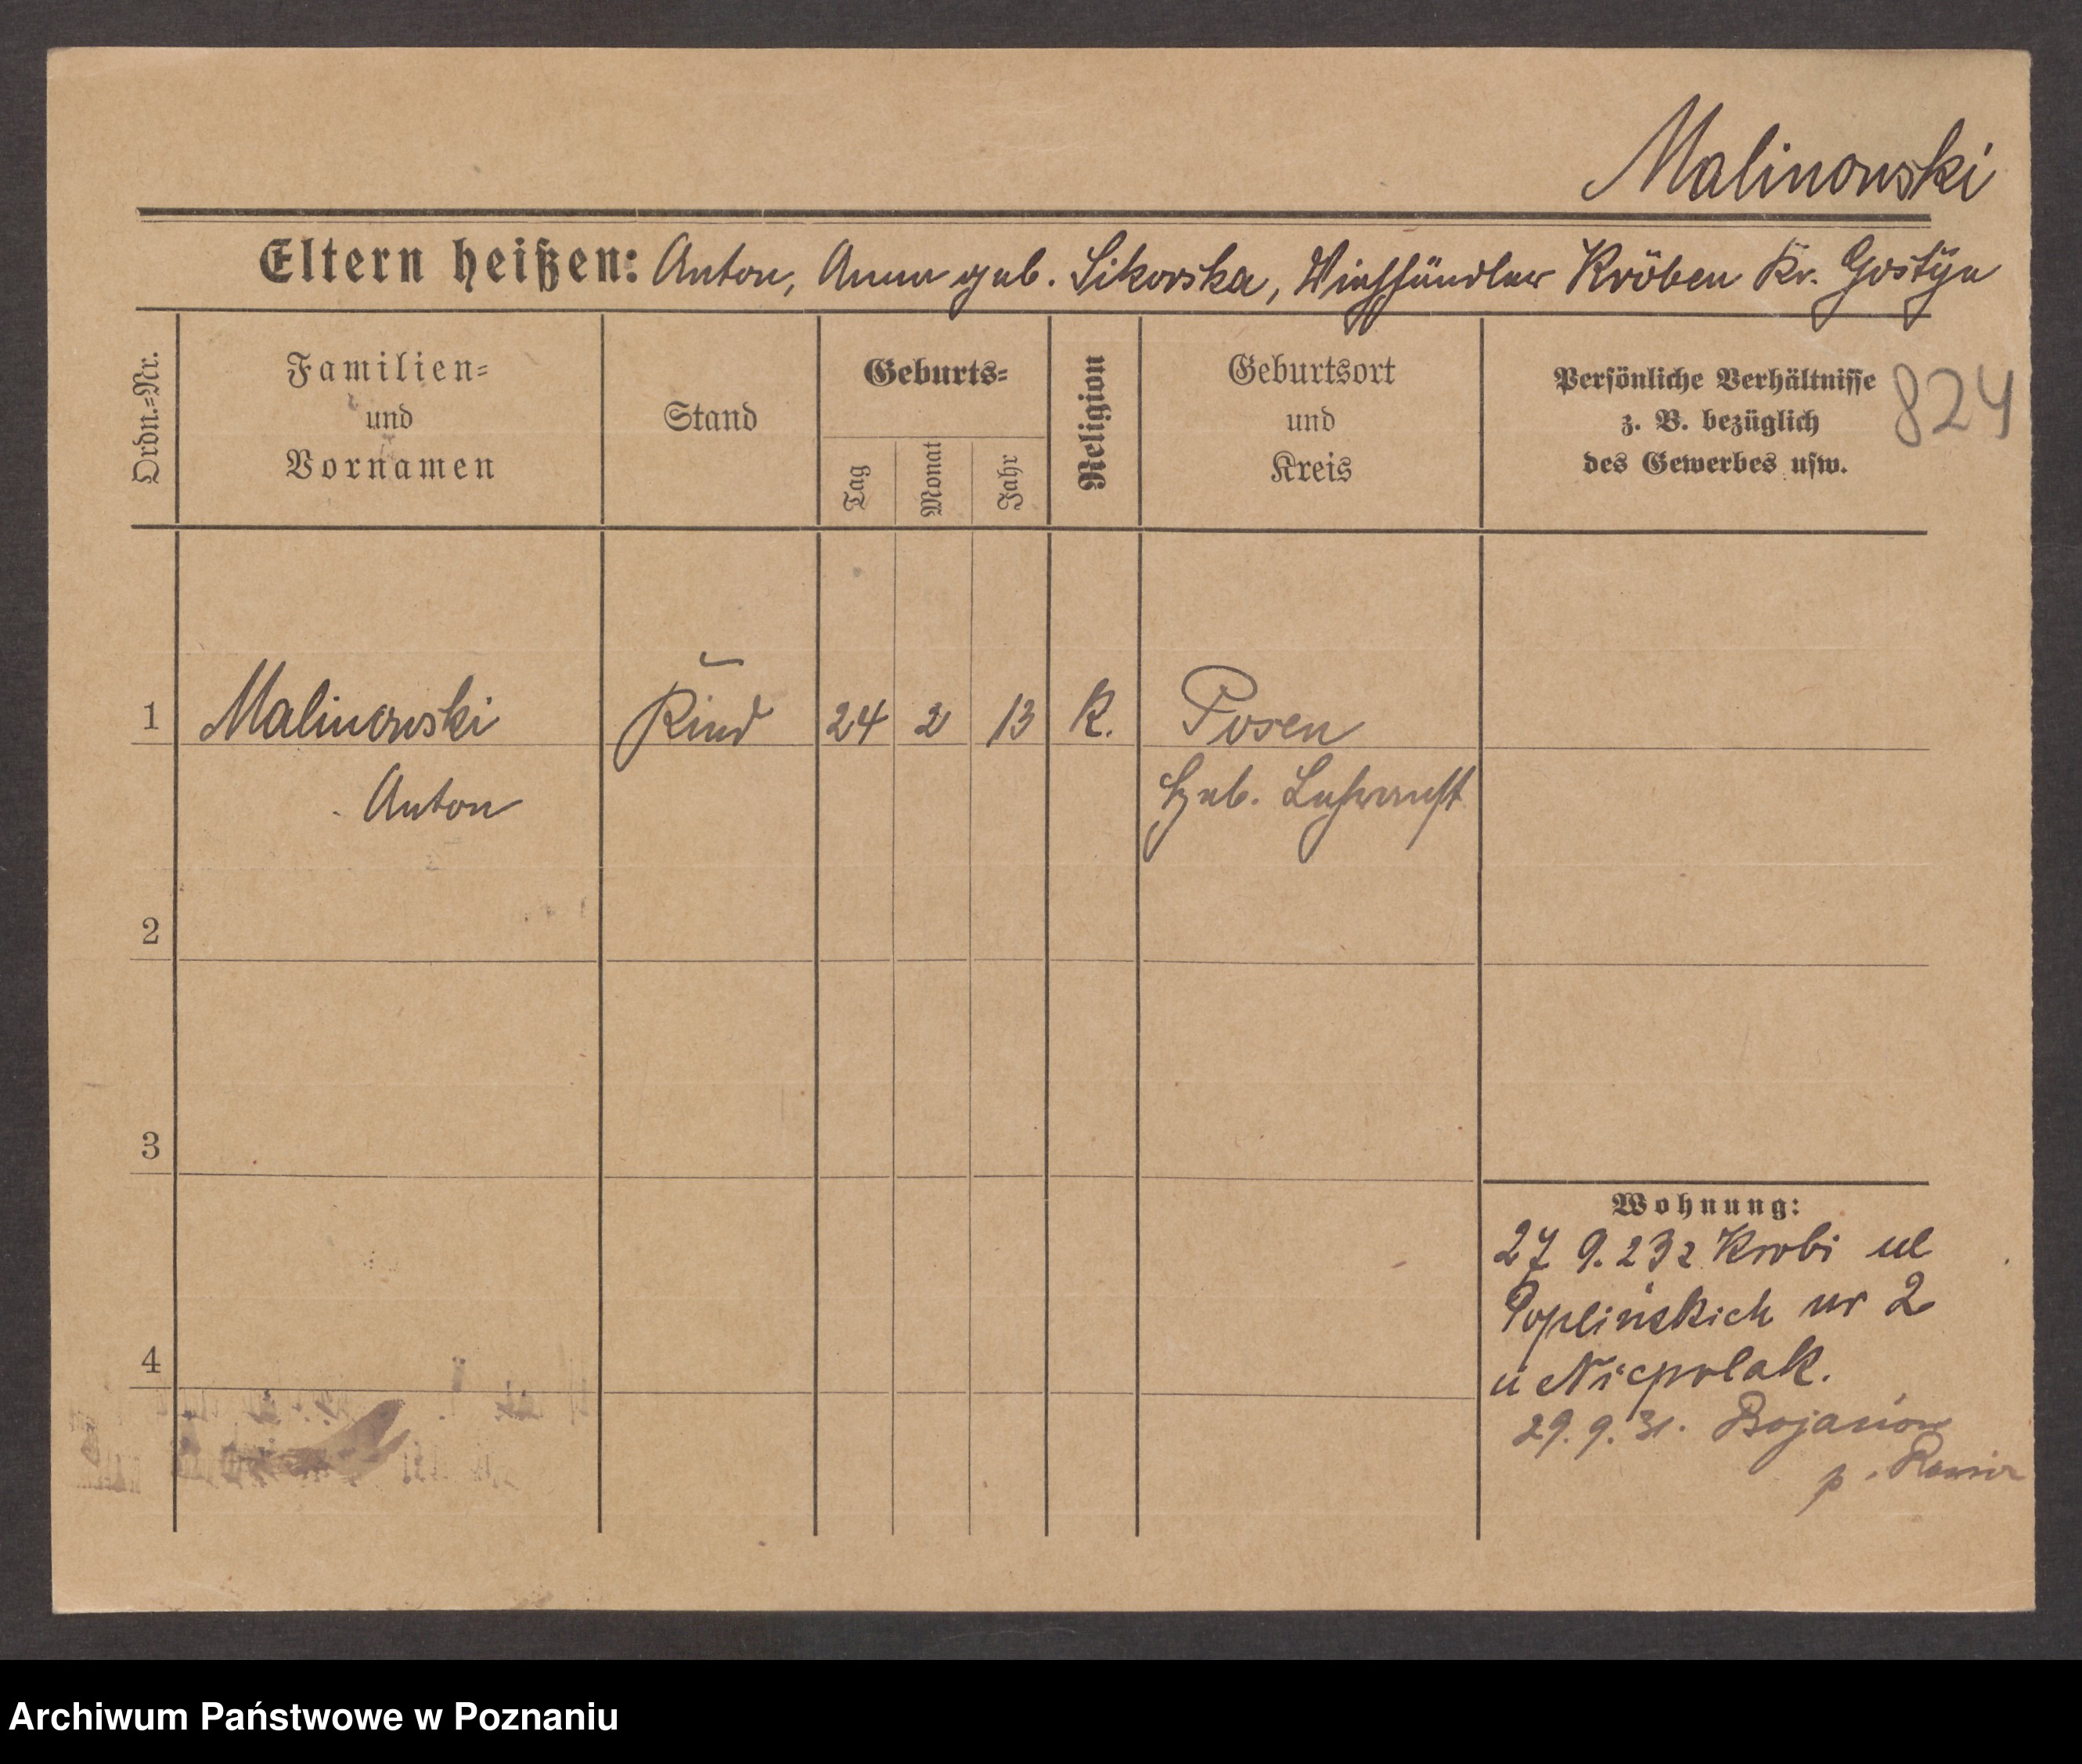 Malinowski
Eltern heißen: Anton, Anna geb. Sikorska, Viehhändler Kröben Kr. Gostyn
Ordn.=Nr.
Familien=
und
Vornamen
Stand
Geburts=
Tag
Monat
Jahr
Religion
Geburtsort
und
Kreis
Persönliche Verhältnisse
z. B. bezüglich
des Gewerbes usw.
824
1 Malinowski Kind 24 2 13 K. Posen
Anton Heb. Lehranst
2
3
4
Wohnung:
27 9.23 z Krobi ul
Poplińskich nr 2
u Niepolak.
29.9.31. Bojanow
p.
Archiwum Państwowe w Poznaniu